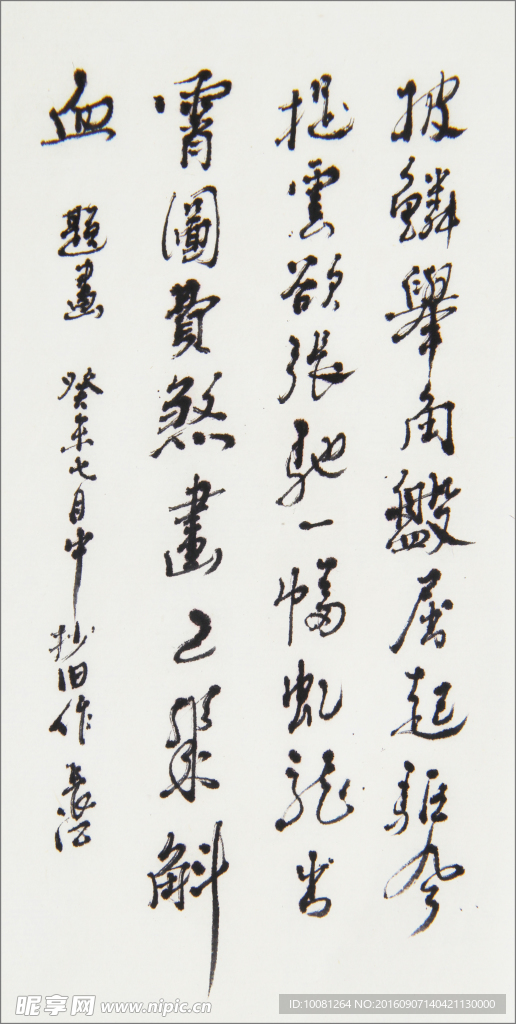 披鱗舉角盤居起驅風
提雲欲張馳一幅虬龍
霄圖費煞畫工幾斛
血 題畫 癸未七月中抄旧作
昵享网 www.nipic.cn
ID:10081264 NO:20160907140421130000